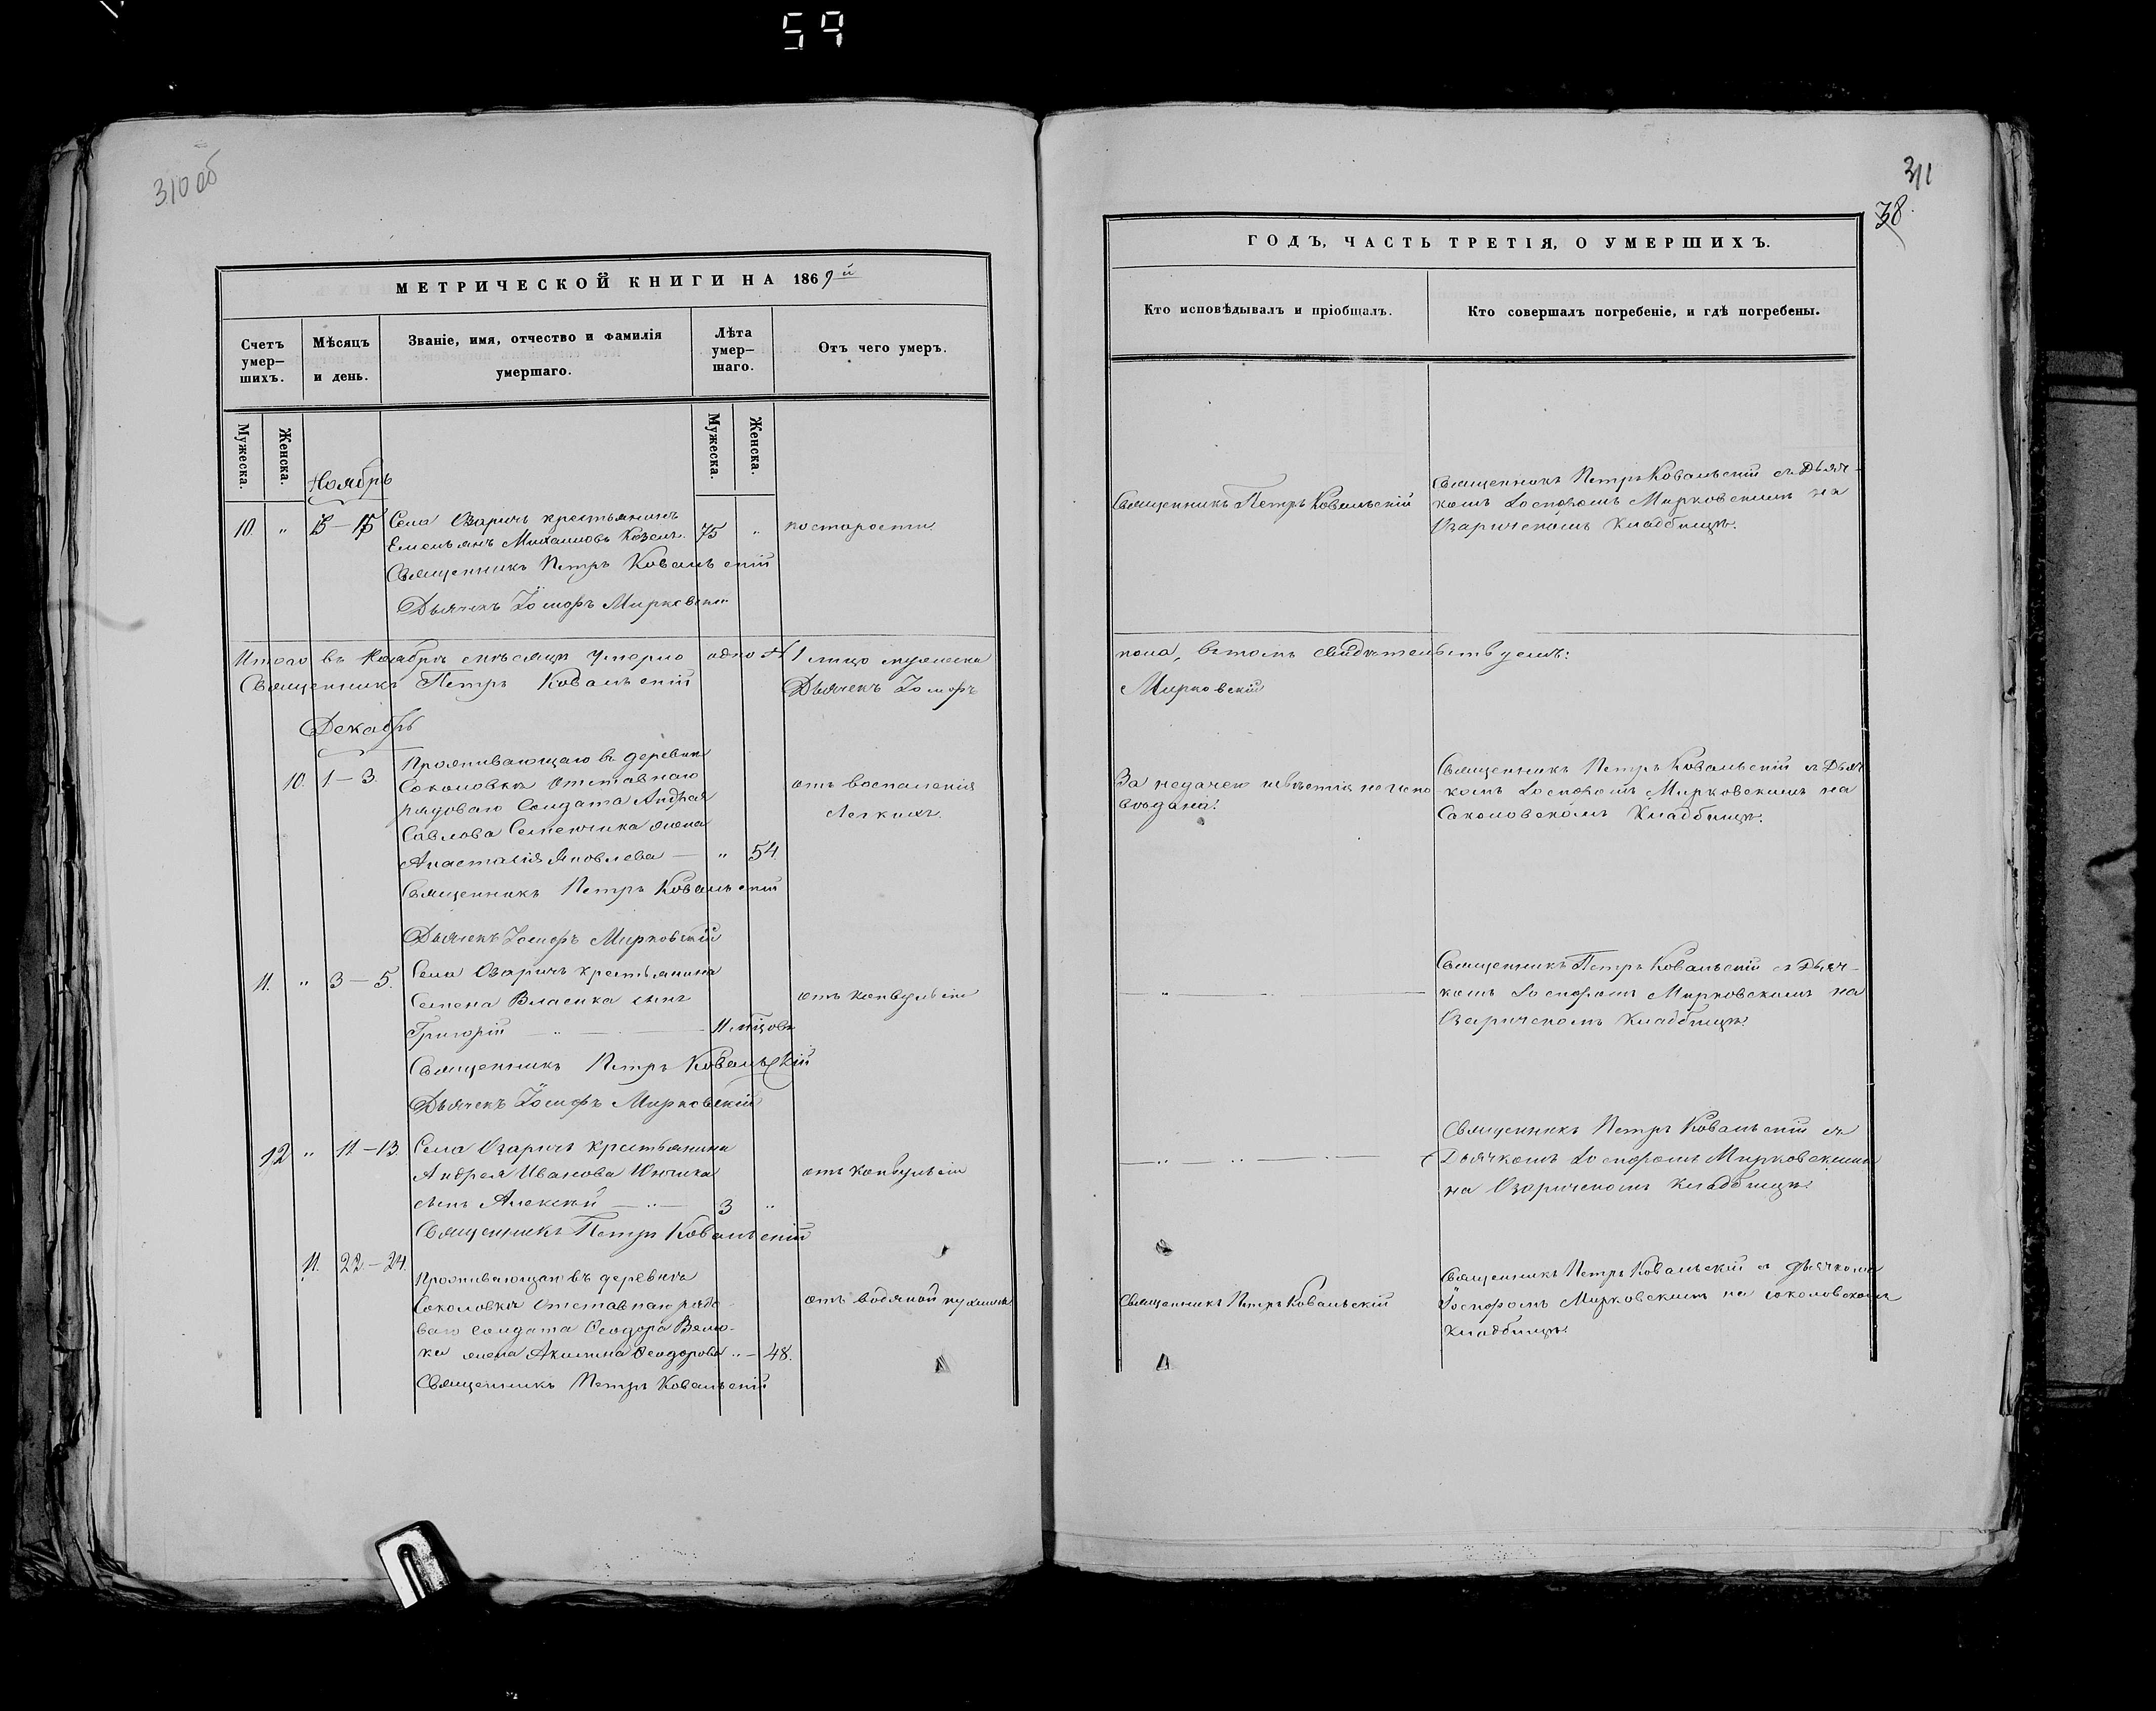 59
310 об
МЕТРИЧЕСКОЙ КНИГИ НА 1869й
Счетъ умер-
шихъ.
Мѣсяцъ
и день.
Званіе, имя, отчество и фамилія
умершаго.
Лѣта
умер-
шаго.
Отъ чего умеръ.
Мужеска.
Женска.
Мужеска.
Женска.
Ноябрь
10. " 13 — 15 Села Озаричъ крестьянинъ
Емельянъ Михаиловъ Козелъ. 75 " по старости
Священникъ Петръ Ковальскій
Дьячекъ Іосифъ Мирковскій
Итого въ Ноябрѣ мѣсяцѣ умерло одно 1 лицо мужеска
Священникъ Петръ Ковальскій Дьячекъ Іосифъ
Декабрь
Проживающаго въ деревни
10. 1 — 3. Соколовкѣ отставнаго отъ воспаленія
рядоваго Солдата Андрея легкихъ.
Савлова Семенчика жена
Анастасія Яковлева — " 54.
Священникъ Петръ Ковальскій
Дьячекъ Іосифъ Мирковскій
11. " 3 — 5. Села Озаричъ крестьянина
Семена Власика сынъ отъ конвульсіи
Григорій — " — 11 мѣсцовъ
Священникъ Петръ Ковальскій
Дьячекъ Іосифъ Мирковскій
12 " 11 — 13 Села Озаричъ крестьянина
Андрея Иванова отъ конвульсіи
сынъ Алексѣй — " — 3 "
Священникъ Петръ Ковальскій
11. 22 — 24.
Проживающаго въ деревнѣ
Соколовкѣ отставнаго рядо- отъ водяной пухлины
ваго солдата Ѳеодора Велю-
ка жена Акилина Ѳеодорова " — 48.
Священникъ Петръ Ковальскій
311
38.
ГОДЪ, ЧАСТЬ ТРЕТІЯ, О УМЕРШИХЪ.
Кто исповѣдывалъ и пріобщалъ.
Кто совершалъ погребеніе, и гдѣ погребены.
Священникъ Петръ Ковальскій
Священникъ Петръ Ковальскій съ Дьяч-
комъ Іосифомъ Мирковскимъ на
Озаричскомъ Кладбищѣ.
пола, въ томъ свидѣтельствуемъ:
Мирковскій
За недачею извѣстія не испо
вѣдана!
Священникъ Петръ Ковальскій съ Дьяч
комъ Іосифомъ Мирковскимъ на
Соколовскомъ Кладбищѣ.
— " —
Священникъ Петръ Ковальскій съ Дьяч-
комъ Іосифомъ Мирковскимъ на
Озаричскомъ Кладбищѣ.
— " — " —
Священникъ Петръ Ковальскій съ
Дьячкомъ Іосифомъ Мирковскимъ
на Озаричскомъ кладбищѣ.
Священникъ Петръ Ковальскій
Священникъ Петръ Ковальскій съ дьячкомъ
Іосифомъ Мирковскимъ на соколовскомъ
кладбищѣ.